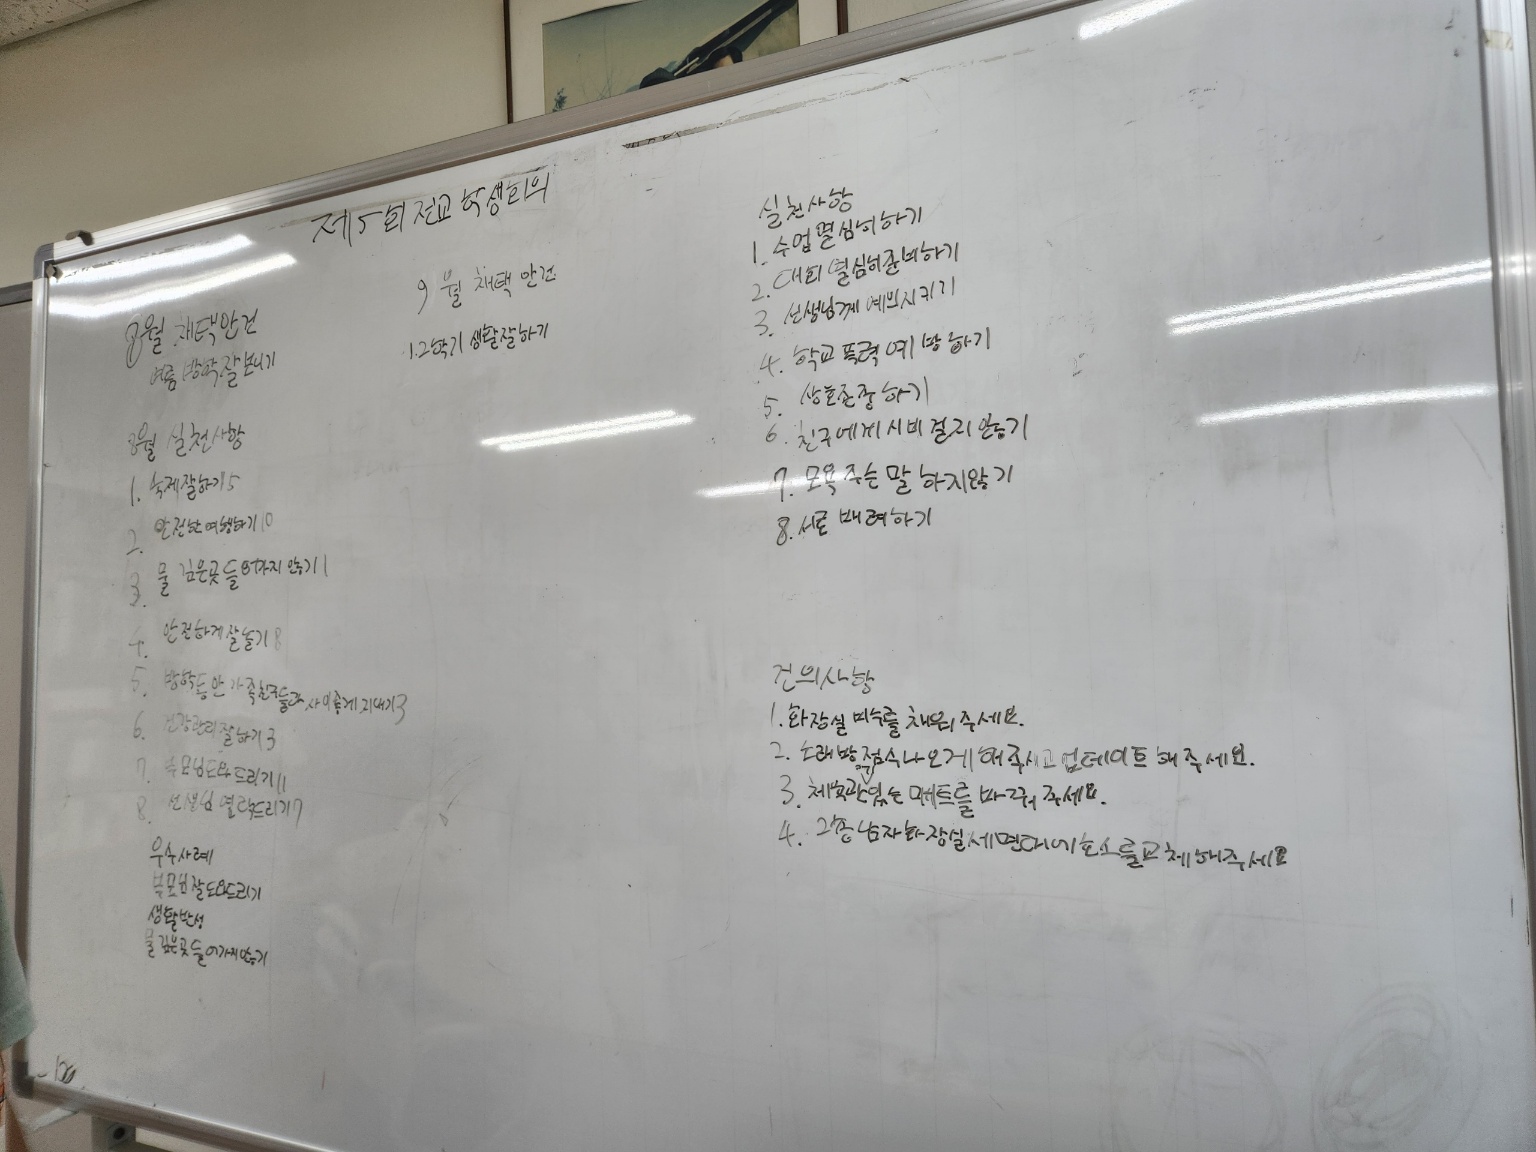 제5회 전교 학생회의
8월 채택안건
여름 방학 잘 보내기
8월 실천사항
1. 숙제 잘하기 5
2. 안전한 여행하기 10
3. 물 깊은곳 들어가지 않기 1
4. 안전하게 잘 놀기 8
5. 방학동안 가족친구들과 사이좋게 지내기 3
6. 건강관리 잘하기 3
7. 부모님 도와드리기 11
8. 선생님 연락드리기 7
우수사례
부모님 잘 도와드리기
생활반성
물 깊은곳 들어가지 않기
9월 채택 안건
1. 2학기 생활 잘하기
실천사항
1. 수업 열심히 하기
2. 대회 열심히 준비하기
3. 선생님께 예의 지키기
4. 학교 폭력 예방 하기
5. 상호존중 하기
6. 친구에게 시비 걸지 않기
7. 모욕 주는 말 하지 않기
8. 서로 배려하기
건의사항
1. 화장실 비누를 채워 주세요.
2. 노래방 점수 나오게 해주시고 업데이트 해 주세요.
3. 체육관 있는 매트를 바꿔 주세요.
4. 2층 남자 화장실 세면대에 호스를 교체해 주세요